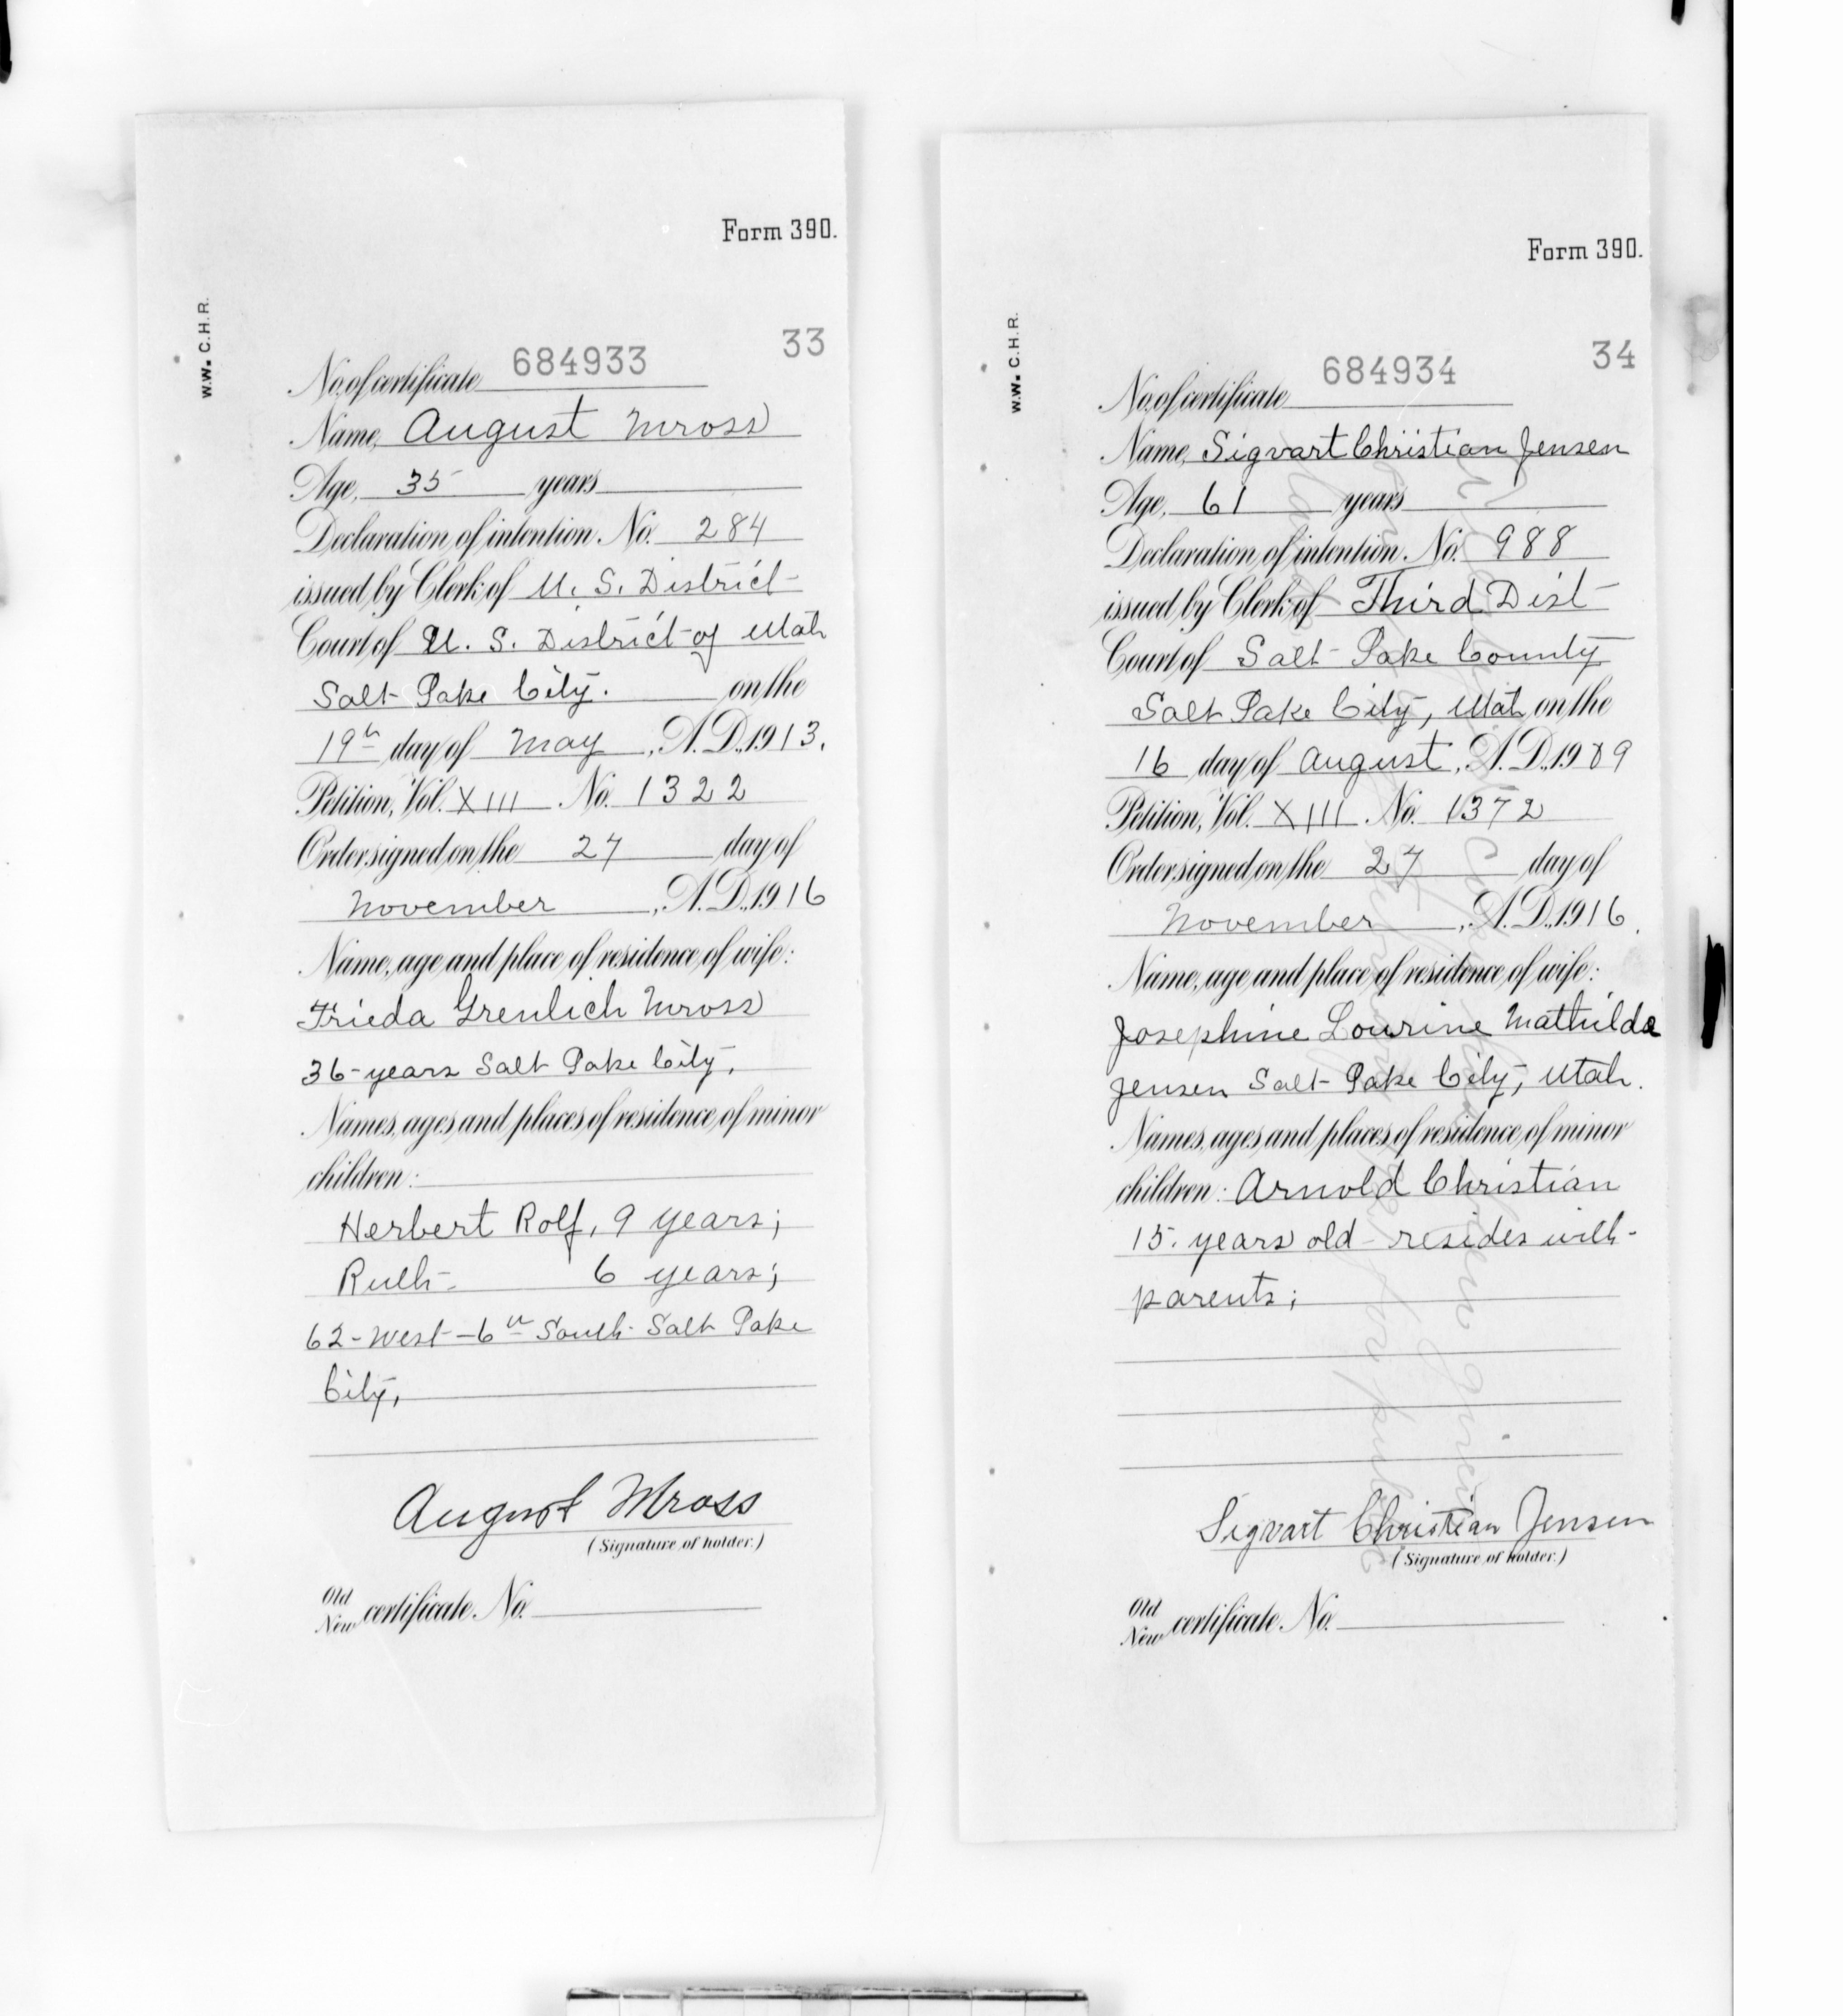 Form 390.
W.W. C.H.R.
33
No. of certificate 684933
Name, August Mross
Age, 35 years
Declaration of intention No. 284
issued by Clerk of U. S. District
Court of U. S. District of Utah
Salt Lake City. on the
19th day of May, A.D. 1913.
Petition, Vol. XIII No. 1322
Order signed on the 27 day of
November, A.D. 1916
Name, age and place of residence of wife:
Frieda Grenlich Mross
36-years Salt Lake City,
Names, ages and places of residence of minor
children:
Herbert Rolf, 9 years;
Ruth- 6 years;
62-West-6th South Salt Lake
City,
August Mross
(Signature of holder.)
Old
New certificate No.
Form 390.
W.W. C.H.R.
34
No. of certificate 684934
Name, Sigvart Christian Jensen
Age, 61 years
Declaration of intention No. 988
issued by Clerk of Third Dist
Court of Salt Lake County
Salt Lake City, Utah on the
16 day of August, A.D. 1909
Petition, Vol. XIII No. 1372
Order signed on the 27 day of
November, A.D. 1916.
Name, age and place of residence of wife:
Josephine Lourine Mathilda
Jensen Salt Lake City, Utah.
Names, ages and places of residence of minor
children: Arnold Christian
15. years old - resides with
parents;
Sigvart Christian Jensen
(Signature of holder.)
Old
New certificate No.